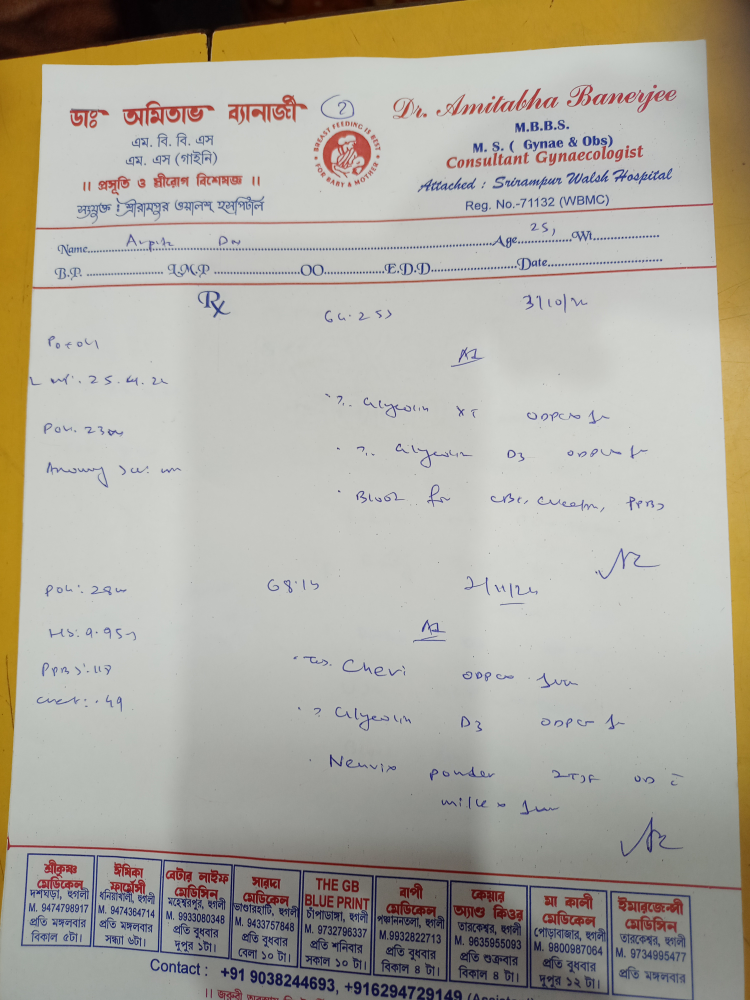 ডাঃ অমিতাভ ব্যানার্জী
এম. বি. বি. এস
এম. এস (গাইনি)
।। প্রসূতি ও স্ত্রীরোগ বিশেষজ্ঞ ।।
সংযুক্ত : শ্রীরামপুর ওয়ালশ্ হসপিটাল
2
BREAST FEEDING IS BEST
FOR BABY & MOTHER
Dr. Amitabha Banerjee
M.B.B.S.
M. S. ( Gynae & Obs)
Consultant Gynaecologist
Attached : Srirampur Walsh Hospital
Reg. No.-71132 (WBMC)
Name Arpita Age 25, Wt
B.P. L.M.P OO E.D.D Date
Rx
64.253
3/10/24
P0+0L1
LMP: 25.4.24
POG: 23w
A1
Glycolin XT ODPC
Glycolin D3 ODPC
Blood for CBC, PPBS
POG: 28w
68.15
7/11/24
Hb: 9.95
PPBS: 118
A1
Cheri ODPC
Glycolin D3 ODPC
Neuvix powder 2TSF OD c̄
milk
শ্রীকৃষ্ণ মেডিকেল
দশঘড়া, হুগলী
M. 9474798917
প্রতি মঙ্গলবার
বিকাল ৫টা।
ঈষিকা ফার্মেসী
ধনিয়াখালী, হুগলী
M. 9474364714
প্রতি মঙ্গলবার
সন্ধ্যা ৬টা।
বেটার লাইফ মেডিসিন
মহেশ্বরপুর, হুগলী
M. 9933080348
প্রতি বুধবার
দুপুর ১টা।
সারদা মেডিকেল
ভাণ্ডারহাটি, হুগলী
M. 9433757848
প্রতি বুধবার
বেলা ১০ টা।
THE GB BLUE PRINT
চাঁপাডাঙ্গা, হুগলী
M. 9732796337
প্রতি শনিবার
সকাল ১০ টা।
বাপী মেডিকেল
পঞ্চাননতলা, হুগলী
M.9932822713
প্রতি বুধবার
বিকাল ৪ টা।
কেয়ার অ্যাণ্ড কিওর
তারকেশ্বর, হুগলী
M. 9635955093
প্রতি শুক্রবার
বিকাল ৪ টা।
মা কালী মেডিকেল
পোড়াবাজার, হুগলী
M. 9800987064
প্রতি বুধবার
দুপুর ১২ টা।
ইমারজেন্সী মেডিসিন
তারকেশ্বর, হুগলী
M. 9734995477
প্রতি মঙ্গলবার
Contact : +91 9038244693, +916294729149